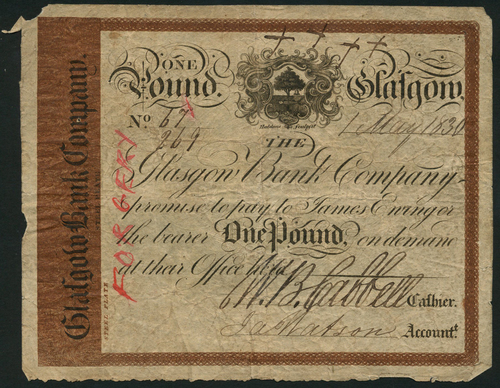 ONE
Pound. Glasgow.
No. 67
269
1 May 1830
THE
Glasgow Bank Company
promise to pay to James Ewing or
the bearer One Pound, on demand
at their Office here
W. B. Cabbell Cashier.
Ja Watson Accountt.
Glasgow Bank Company.
FORGERY
STEEL PLATE